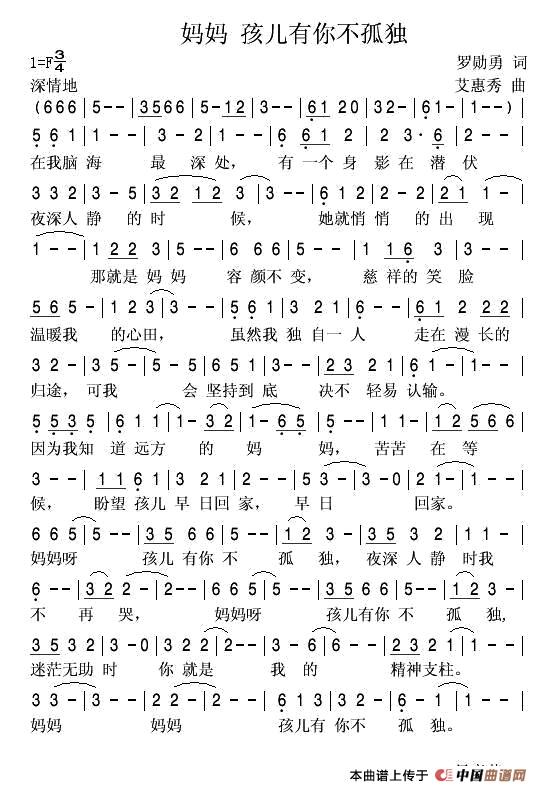 妈妈 孩儿有你不孤独
1=F 3/4 罗勋勇 词
深情地 艾惠秀 曲
(666 | 5-- | 3566 | 5-12 | 3-- | 612 | 32· | 61- | 1--) |
561 | 1-- | 3-2 | 1-- | 6 61 | 2-2 | 23·6 | 2-- |
在我脑 海 最 深 处, 有 一个 身 影 在 潜 伏
332 | 3-5 | 32 12 | 3-- | 332 | 3-2 | 21 1 | 1-- |
夜深人 静 的 时 候, 她就悄 悄 的 出 现
1-- | 122 | 3-5 | 5-- | 2-5 | 5-- | 116 | 3-- |
那就是 妈 妈 容 颜 不 变, 慈 祥的 笑 脸
565 | 5-- | 123 | 3-- | 561 | 3-1 | 61 2 22 |
温暖我 的心田, 虽然我 独 自 一 人 走在 漫 长的
3-- | 332 | 5-5 | 651 | 3-- | 23 21 | 61- | 1-- |
归途, 可我 会 坚持到 底 决不 轻易 认输。
5535 | 611 | 1-3 | 2-- | 1-65 | 5-- | 12566 |
因为我知 道 远方 的 妈 妈, 苦苦 在 等
3-- | 1161 | 322 | 1-2 | 53- | 3-0 | 21- | 1-- |
候, 盼望 孩儿 早 日回 家, 早 日 回家。
665 | 5-- | 35 66 | 5-5 | 12 3 | 32 3 | 2 32 | 11- |
妈妈呀 孩儿 有你 不 孤 独, 夜深 人 静 时我
6-- | 32 2- | 2-- | 665 | 5-- | 35 66 | 5-5 | 123- |
不 再 哭, 妈妈呀 孩儿有你 不 孤 独,
3532 | 3-0 | 332 | 2-- | 5-6 | 6-- | 2321 | 1-- |
迷茫无助 时 你 就是 我 的 精神支柱。
3-- | 3-- | 2-- | 2-- | 613 | 332 | 3-2 | 1-- |
妈妈 妈妈 孩儿有 你不 孤 独。
本曲谱上传于 中国曲谱网